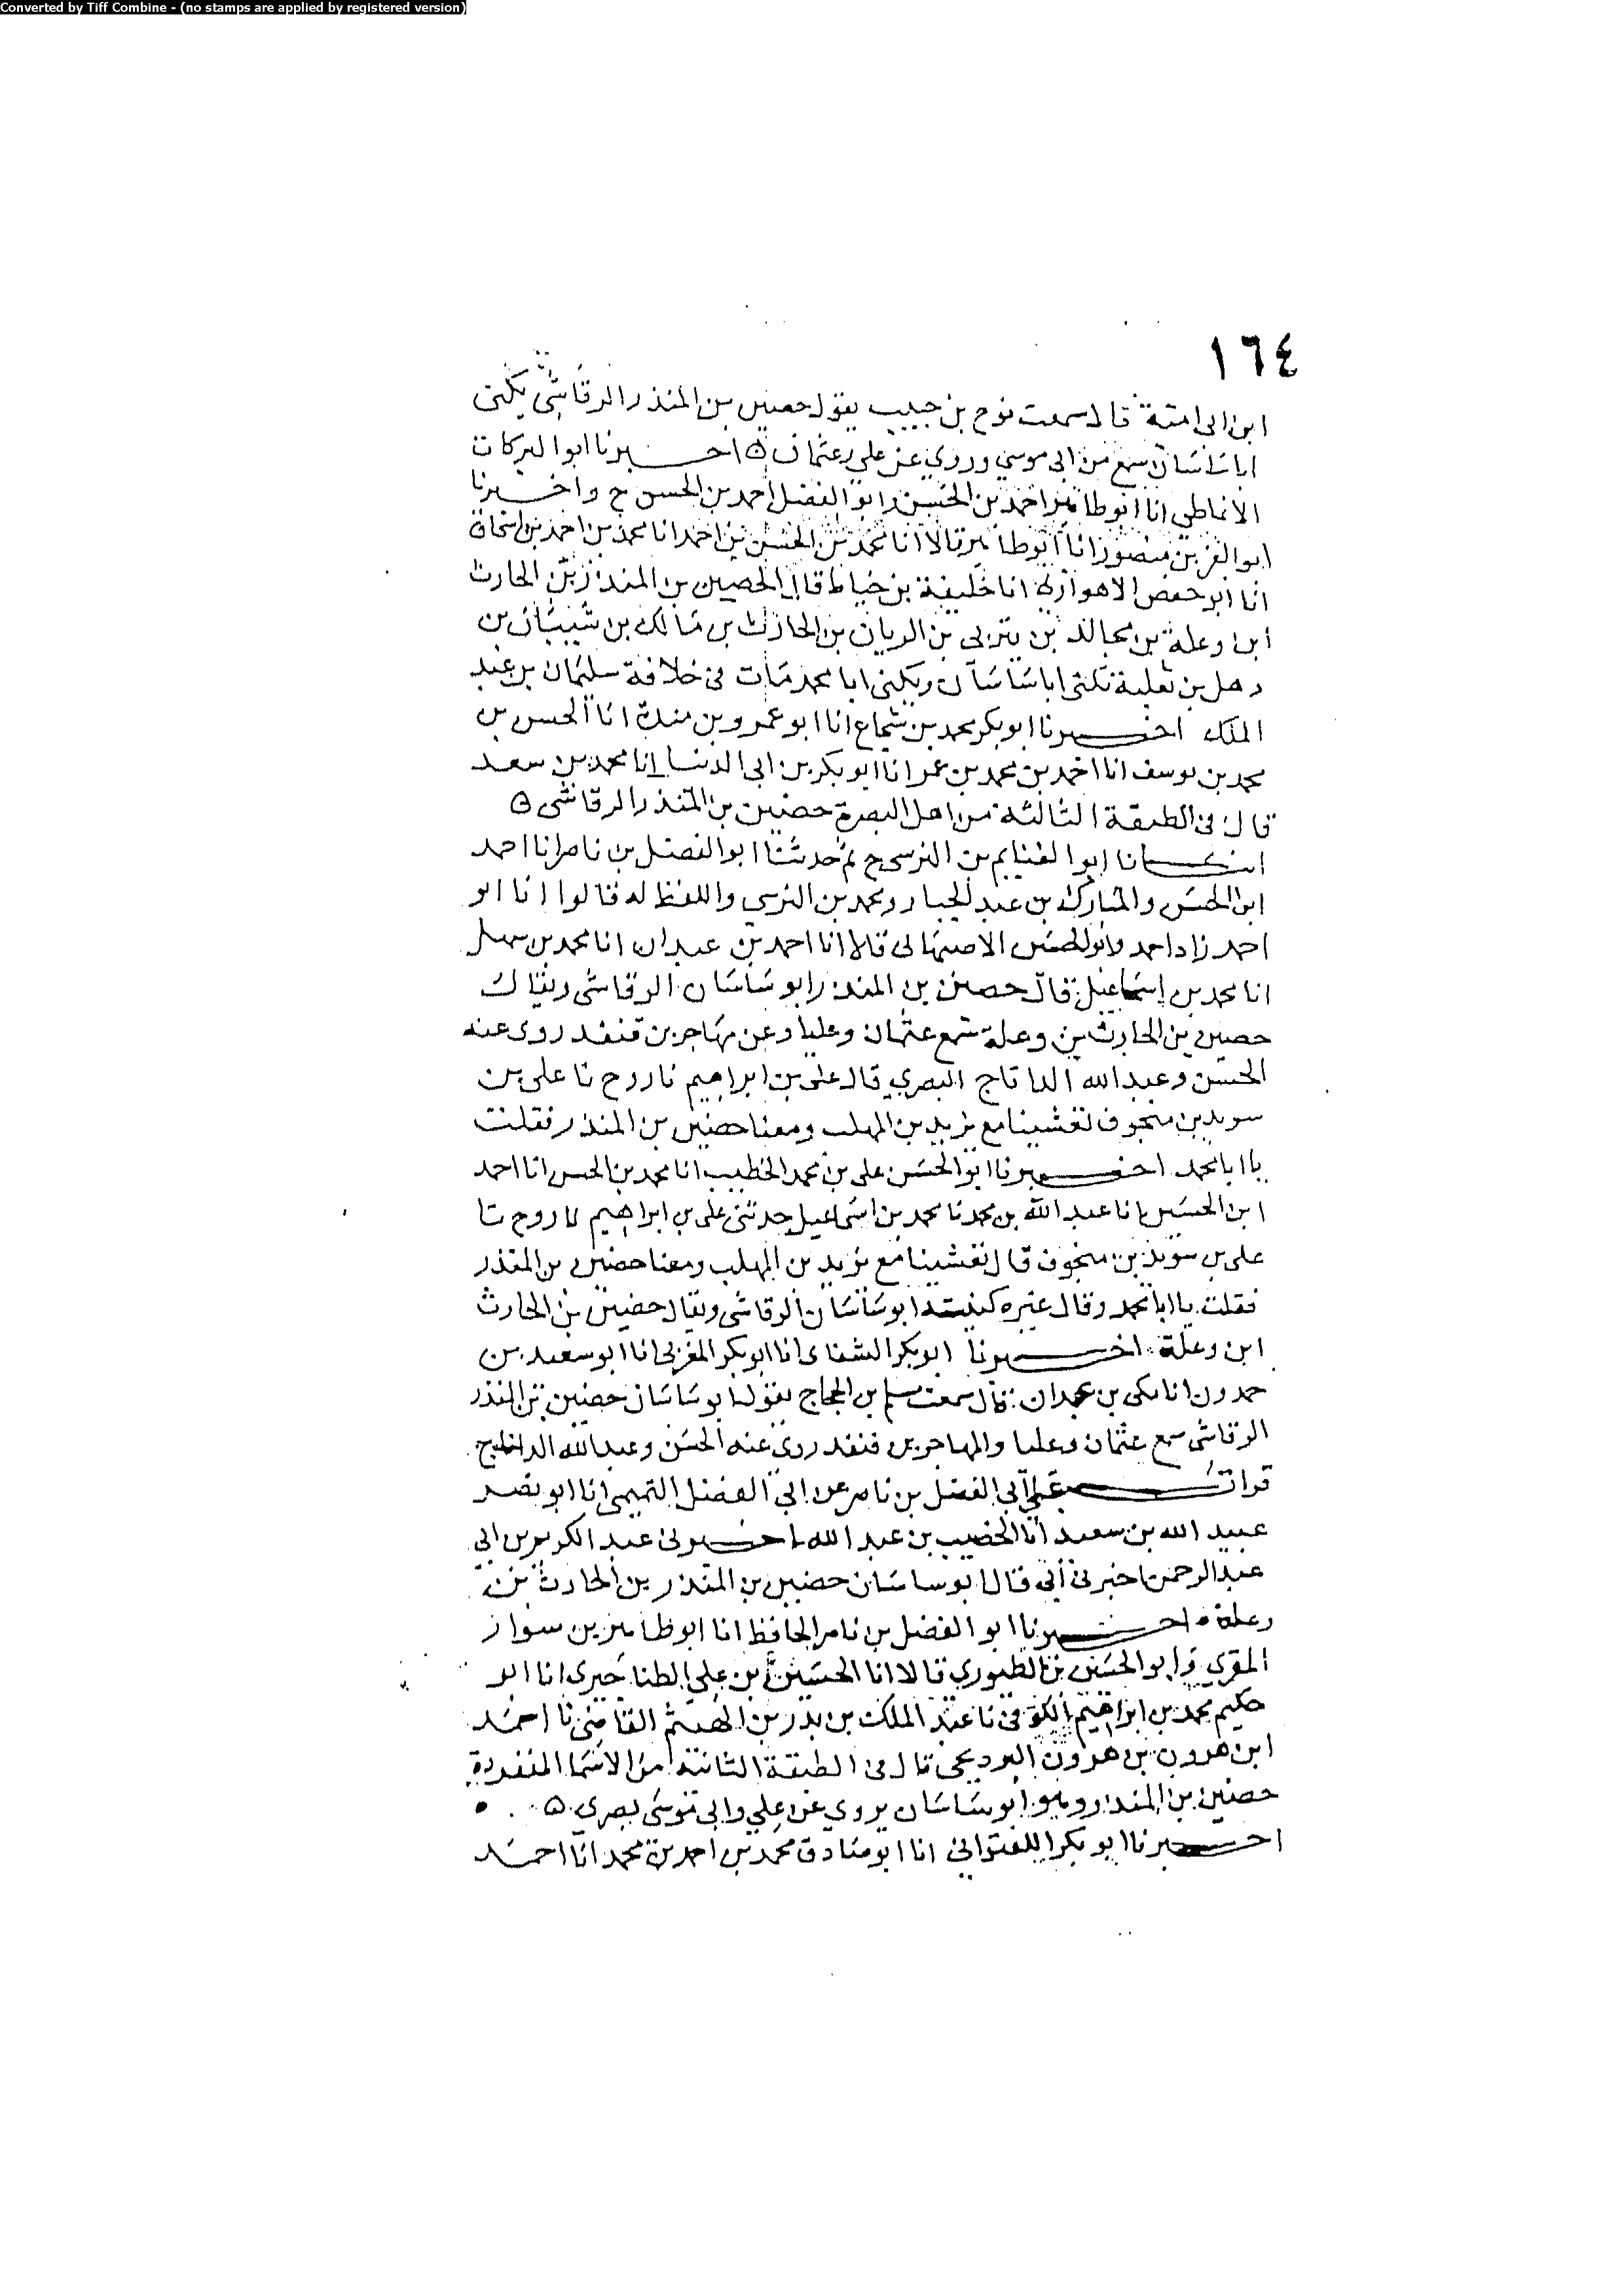 Converted by Tiff Combine - (no stamps are applied by registered version)
١٦٤
ابن ابى امية قالا سمعت نوح بن حبيب يقول حصين بن المنذر الرقاشى يكنى
ابا ساسان سمع من ابى موسي وروي عن على وعثمان ه اخبرنا ابوا البركات
الانماطي انا ابوطاهر احمد بن الحسين وابوا الفضل احمد بن الحسن ح واخبرنا
ابوا العز بن منصور انا ابوطاهر قالا انا محمد بن الحسن بن احمد انا محمد بن احمد بن اسحاق
انا ابو حفص الاهوازي انا خليفة بن خياط قال الحصين بن المنذر بن الحارث
ابن وعلة بن مجالد بن يثربى بن الريان بن الحارث بن مالك بن شيبان بن
دهل بن ثعلبة تكنى اباساسان ويكنى ابا محمد مات فى خلافة سليمان بن عبد
الملك اخبرنا ابو بكر محمد بن شجاع انا ابو عمرو بن مندة انا الحسن بن
محمد بن يوسف انا احمد بن محمد بن عمر انا ابو بكر بن ابى الدنيا انا محمد بن سعد
قال فى الطبقة الثالثة من اهل البصرة حضين بن المنذر الرقاشى ه
انبانا ابوا الغنايم بن النرسى ح ثم حدثنا ابوا الفضل بن ناصر انا احمد
ابن الحسن والمبارك بن عبد الجبار ومحمد بن النرسي واللفظ له قالوا انا ابو
احمد زاد احمد وابو الحسن الاصبهانى قالا انا احمد بن عبدان انا محمد بن سهل
انا محمد بن اسماعيل قال حصين بن المنذر ابو ساسان الرقاشى ويقال
حصين بن الحارث بن وعلة سمع عثمان وعليا وعن مهاجر بن قنفد روى عنه
الحسن وعبد الله الداناج البصري قال على بن ابراهيم نا روح نا على بن
سويد بن منجوف تغشينا مع يزيد بن المهلب ومعنا حضين بن المنذر فقلت
يا ابا محمد اخبرنا ابوا الحسن على بن محمد الخطيب انا محمد بن الحسن انا احمد
ابن الحسين انا عبد الله بن محمد نا محمد بن اسماعيل حدثنى على بن ابراهيم نا روح نا
على بن سويد بن منجوف قال تغشينا مع يزيد بن المهلب ومعنا حضين بن المنذر
فقلت يا ابا محمد وقال غيره كنيته ابو ساسان الرقاشى ويقال حضين بن الحارث
ابن وعلة اخبرنا ابو بكر الشقانى انا ابو بكر المغربى انا ابو سعيد بن
حمدون انا مكى بن عبدان قال سمعت مسلم بن الحجاج يقول ابو ساسان حضين بن المنذر
الرقاشى سمع عثمان وعليا والمهاجر بن قنفد روى عنه الحسن وعبد الله الداناج
قرات على ابي الفضل بن ناصر عن ابي الفضل التميمى انا ابو نصر
عبيد الله بن سعيد انا الخصيب بن عبد الله اخبرنى عبد الكريم بن ابى
عبد الرحمن اخبرنى ابى قال ابو ساسان حضين بن المنذر بن الحارث بن
وعلة اخبرنا ابوا الفضل بن ناصر الحافظ انا ابو طاهر بن سوار
المقرى وابو الحسين بن الطيوري قالا انا الحسين بن على الطناجيرى انا ابو
حكيم محمد بن ابراهيم الكوفى نا عبد الملك بن بدر بن الهيثم القاضى نا احمد
ابن هرون بن هرون البرديجى قال فى الطبقة الثانية من الاسما المنفردة
حضين بن المنذر وهو ابو ساسان يروي عن على وابى موسى بصري ه
اخبرنا ابو بكر اللفتوانى انا ابو صادق محمد بن احمد بن محمد انا احمد